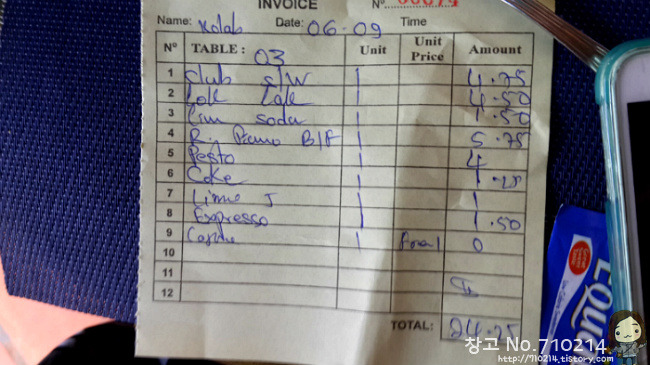 INVOICE
Nº 00074
Name: Kolab Date: 06-09 Time
Nº TABLE: 03 Unit Unit Price Amount
1 Club S/W 1 4.75
2 Lok Lak 1 4.50
3 Lim soda 1 1.50
4 R. B/F 1 5.75
5 Pesto 1 4
6 Coke 1 1.25
7 Lime J 1 1
8 Expresso 1 1.50
9 1 0
10
11
12
TOTAL: 24.25
Equal
창고 No.710214
http://710214.tistory.com